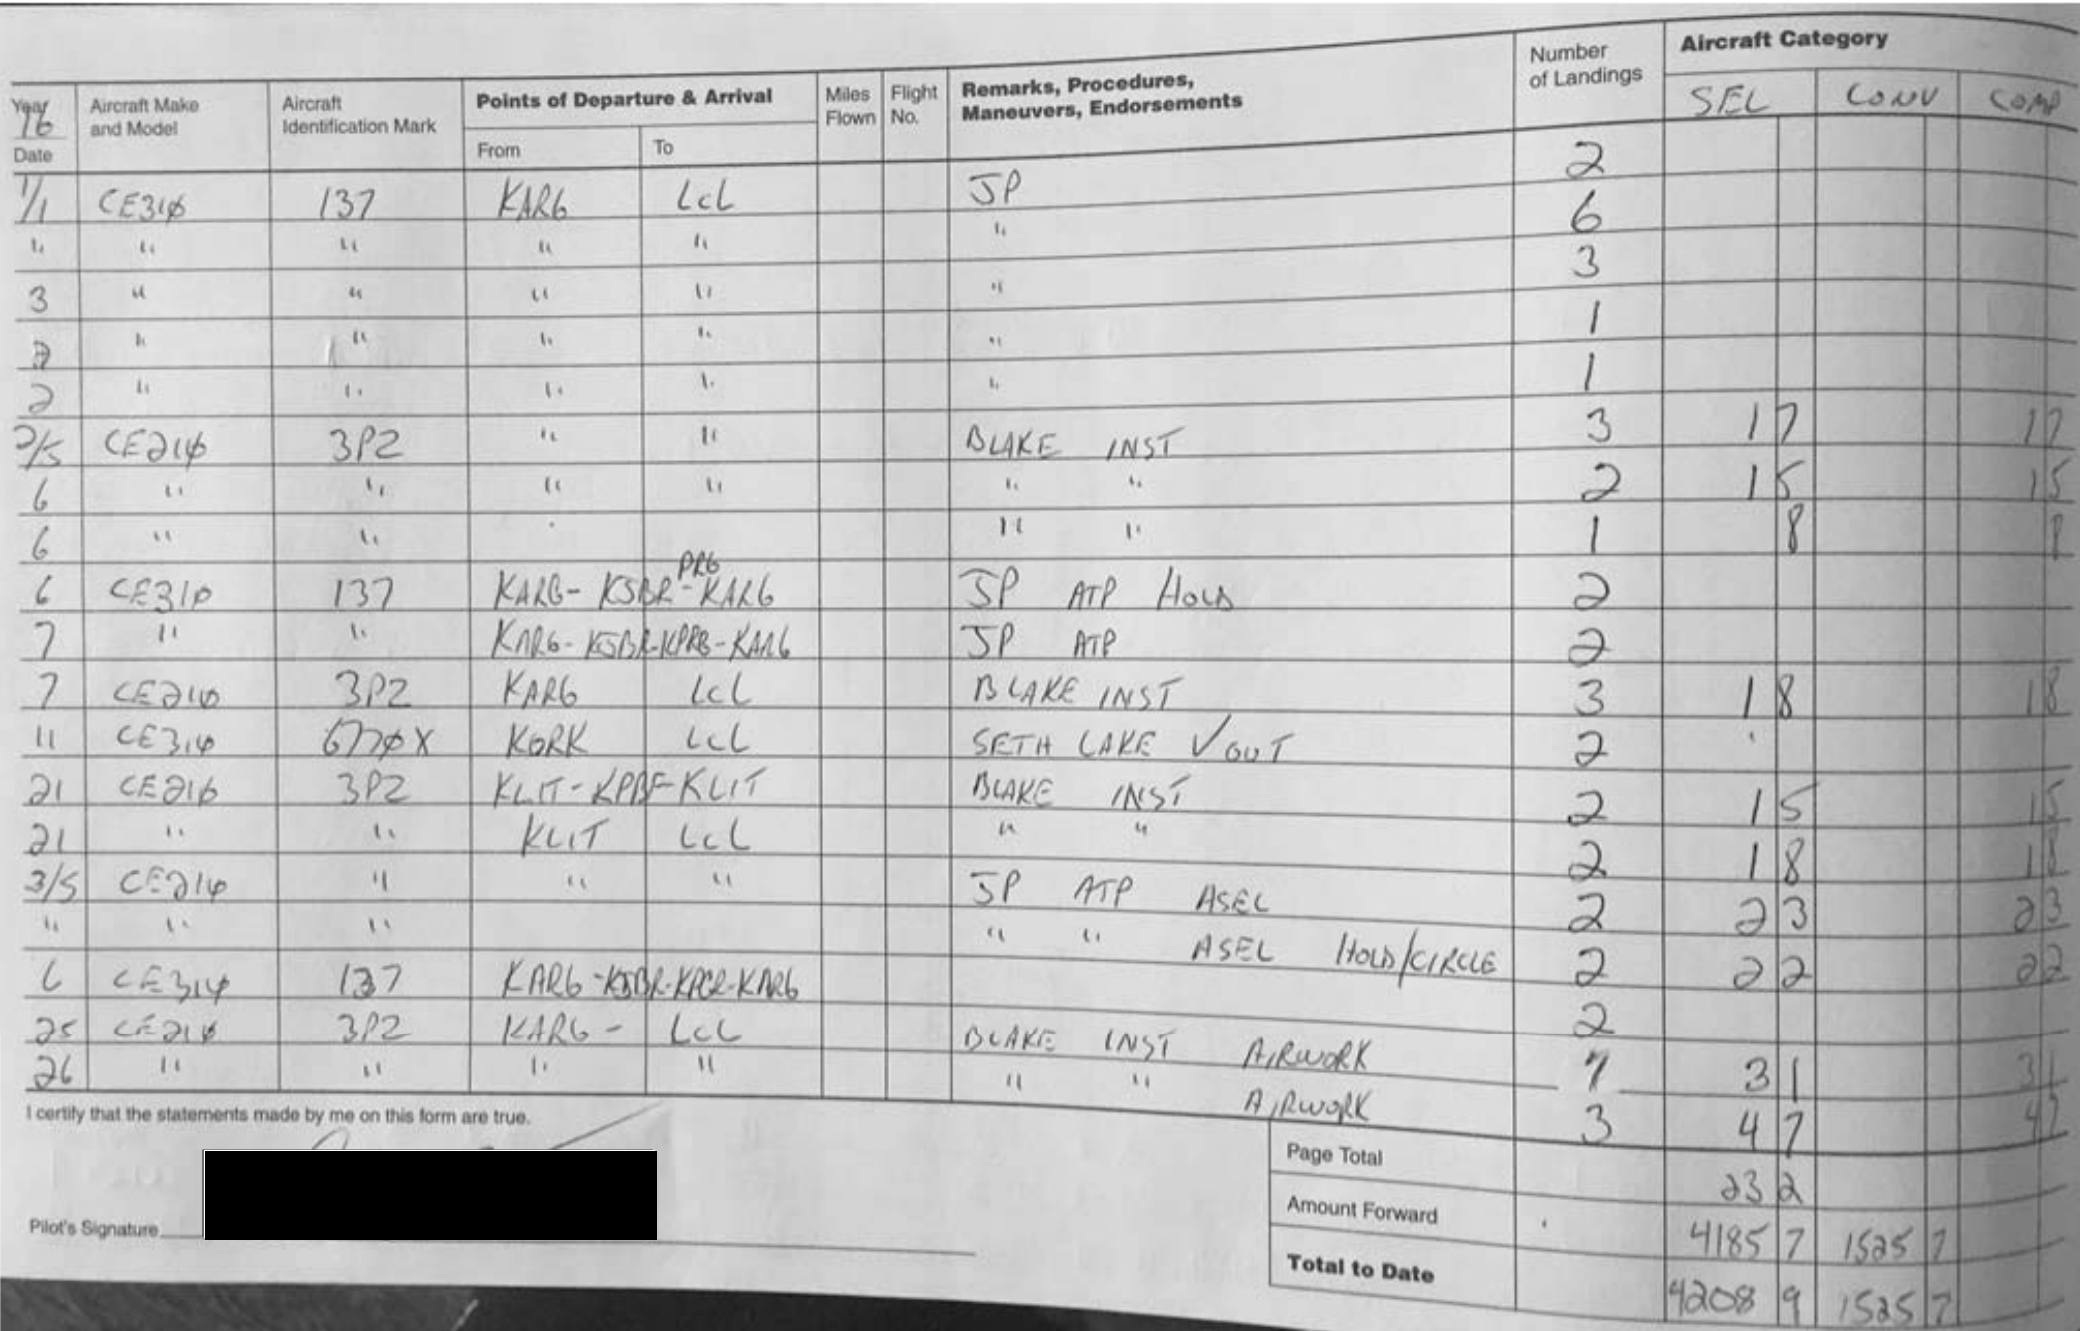 Aircraft Category
Number of Landings
SEL CONV COMP
Year 16 Date Aircraft Make and Model Aircraft Identification Mark Points of Departure & Arrival From To Miles Flown Flight No. Remarks, Procedures, Maneuvers, Endorsements
1/1 CE31φ 137 KARG LCL JP 2
" " " " " " 6
3 " " " " " 3
" " " " " 1
2 " " " " " 1
2/5 CE21φ 3PZ " " BLAKE INST 3 1 7 17
6 " " " " " " 2 1 5 15
6 " " " " 1 8 8
6 CE310 137 KARG- KJBR-PRG-KARG JP ATP HOLD 2
7 " " KARG- KJBR-KPRG-KARG JP ATP 2
7 CE21φ 3PZ KARG LCL BLAKE INST 3 1 8 18
11 CE31φ 677φX KORK LCL SETH LAKE VOUT 2
21 CE21φ 3PZ KLIT-KPBF-KLIT BLAKE INST 2 1 5 15
21 " " KLIT LCL " " 2 1 8 18
3/5 CE21φ " " " JP ATP ASEL 2 2 3 23
" " " " " ASEL HOLD/CIRCLE 2 2 2 22
6 CE31φ 137 KARG-KJBR- -KARG 2
25 CE21φ 3PZ KARG- LCL BLAKE INST AIRWORK 7 3 1 31
26 " " " " " " AIRWORK 3 4 7 47
I certify that the statements made by me on this form are true.
Page Total 23 2
Amount Forward 4185 7 1525 7
Pilot's Signature
Total to Date 4208 9 1525 7